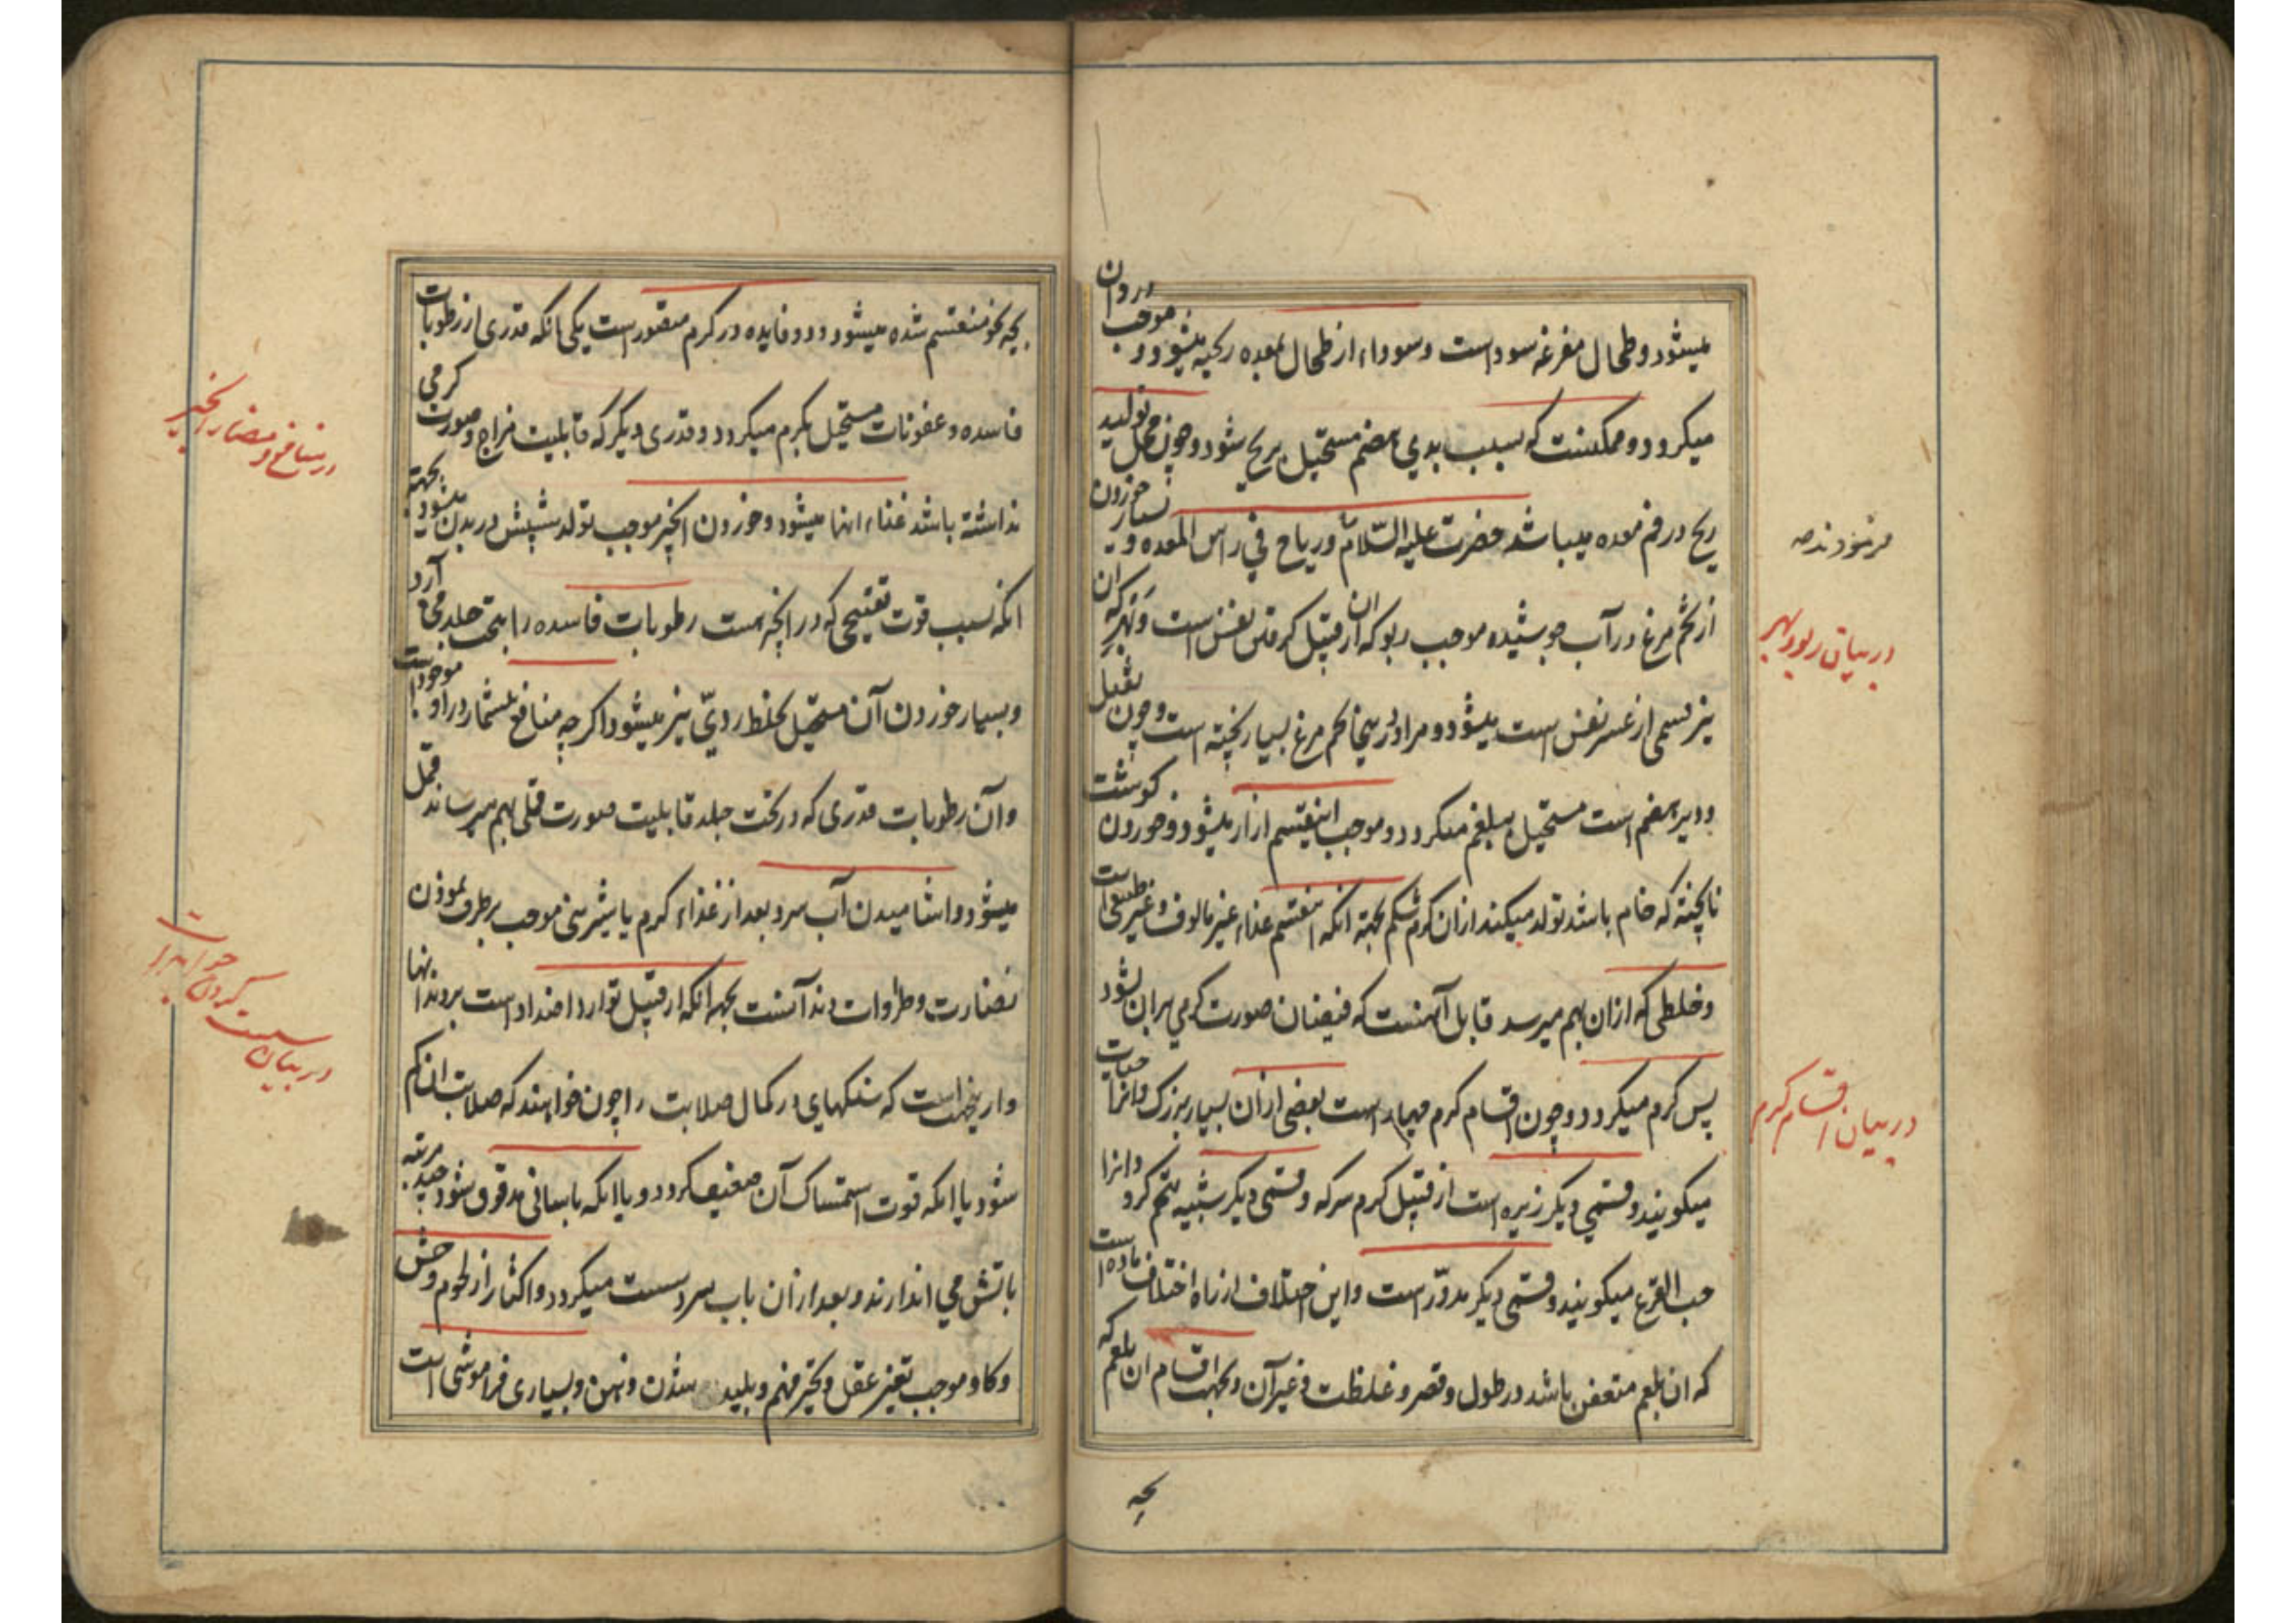 میشود و طحال مفرغه سوداست و سوداء از طحال بمعده ریخته میشود و موجب دروان
میکردد و ممکنست که بسبب بدی هضم مستحیل بریح شود و چون محل تولید
ریح در فم معده میباشد حضرت علیه السلام و ریاح فی راس المعده و بسیار خوردن
فرمودند صه
از تخم مرغ در آب جوشیده موجب ربو که آن از قبیل کرفتن نفس است و بهر که آن
در بیان ربو و بهر
نیز قسمی از عسر نفس است میشود و مراد در اینجا تخم مرغ بسیار پخته است و چون ثقیل
و دیر هضم است مستحیل ببلغم میکردد و موجب اینقسم ازار میشود و خوردن کوشت
ناپخته که خام باشد تولد میکند از ان کرم شکم بجهة آنکه اینقسم غذاء غیر مالوف و غیر طبیعی است
و خلطی که ازان بهم میرسد قابل آنست که فیضان صورت کرمی بران شود
پس کرم میکردد و چون اقسام کرم چهار است بعضی ازان بسیار بزرک و انرا حیات
در بیان اقسام کرم
میکویند و قسمی دیکر زیره است از قبیل کرم سرکه و قسمی دیکر شبیه بتخم کدو و انرا
حب القرع میکویند و قسمی دیکر مدور است و این اختلاف از راه اختلاف ماده است
که ان بلغم متعفن باشد در طول و قصر و غلظت و غیر آن و بجهت اقسام ان بلغم که
بچه
بچه نحو منقسم شده میشود و دو فایده در کرم متصور است یکی انکه قدری از رطوبات
فاسده و عفونات مستحیل بکرم میکردد و قدری دیکر که قابلیت مزاج و صورت کرمی
در منافع و مضار انجیر
نداشته باشد غذاء انها میشود و خوردن انجیر موجب تولد شپش در بدن میشود بجهة
انکه بسبب قوت تفتیحی که در انجیر هست رطوبات فاسده را بتحت جلد می آرد
و بسیار خوردن آن مستحیل بخلط ردی نیز میشود اکرچه منافع بیشمار در او موجود است
و آن رطوبات قدری که در تحت جلد قابلیت صورت قملی بهم میرساند قمل
میشود و اشامیدن آب سرد بعد از غذاء کرم یا شیرینی موجب برطرف نمودن
نضارت و طراوات دندانست بجهة انکه از قبیل توارد اضداد است بر دندانها
و از ینجهت است که سنکهای در کمال صلابت را چون خواهند که صلابت ان کم
در بیان سست کردن
شود یا انکه قوت استمساک آن ضعیف کردد و یا انکه باسانی مدقوق شود چند مرتبه
باتش می اندازند و بعد از ان باب سرد سست میکردد و اکثار از لحوم وحش
و کاو موجب تغیر عقل و تحیر فهم و بلید شدن ذهن و بسیاری فراموشی است